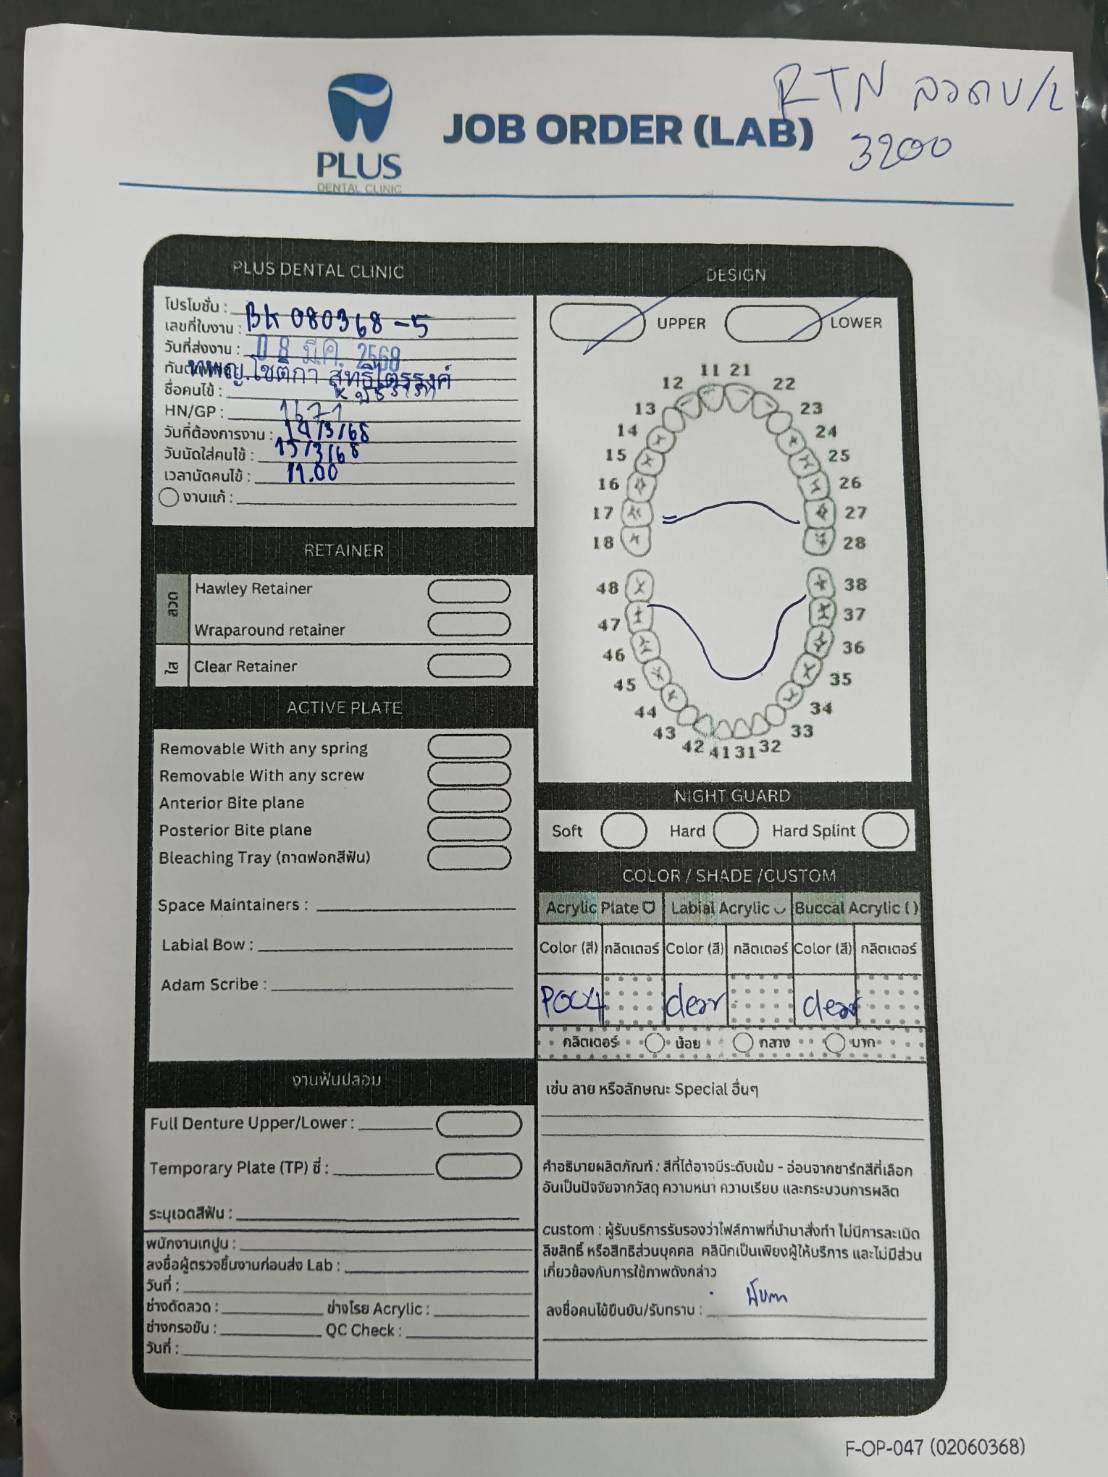 RTN ลวดบ/ล
3200
PLUS
DENTAL CLINIC
JOB ORDER (LAB)
PLUS DENTAL CLINIC
โปรโมชั่น :
เลขที่ใบงาน : BK 080368-5
วันที่ส่งงาน : 08 มี.ค. 2568
ทพญ.โชติกา สุทธิไตรรงค์
ชื่อคนไข้ :
HN/GP : 1671
วันที่ต้องการงาน : 14/3/68
วันนัดใส่คนไข้ : 15/3/68
เวลานัดคนไข้ : 11.00
งานแก้ :
RETAINER
ลวด
Hawley Retainer
Wraparound retainer
ใส
Clear Retainer
ACTIVE PLATE
Removable With any spring
Removable With any screw
Anterior Bite plane
Posterior Bite plane
Bleaching Tray (ถาดฟอกสีฟัน)
Space Maintainers :
Labial Bow :
Adam Scribe :
งานฟันปลอม
Full Denture Upper/Lower :
Temporary Plate (TP) ซี่ :
ระบุเฉดสีฟัน :
พนักงานเทปูน :
ลงชื่อผู้ตรวจชิ้นงานก่อนส่ง Lab :
วันที่ :
ช่างดัดลวด : ช่างโรย Acrylic :
ช่างกรอขัน : QC Check :
วันที่ :
DESIGN
UPPER LOWER
11 21
12 22
13 23
14 24
15 25
16 26
17 27
18 28
48 38
47 37
46 36
45 35
44 34
43 33
42 41 31 32
NIGHT GUARD
Soft Hard Hard Splint
COLOR / SHADE /CUSTOM
Acrylic Plate Labial Acrylic Buccal Acrylic ( )
Color (สี) กลิตเตอร์ Color (สี) กลิตเตอร์ Color (สี) กลิตเตอร์
P004 clear clear
กลิตเตอร์ น้อย กลาง มาก
เช่น ลาย หรือลักษณะ Special อื่นๆ
คำอธิบายผลิตภัณฑ์ : สีที่ได้อาจมีระดับเข้ม - อ่อนจากชาร์ทสีที่เลือก
อันเป็นปัจจัยจากวัสดุ ความหนา ความเรียบ และกระบวนการผลิต
custom : ผู้รับบริการรับรองว่าไฟล์ภาพที่นำมาสั่งทำ ไม่มีการละเมิด
ลิขสิทธิ์ หรือสิทธิส่วนบุคคล คลินิกเป็นเพียงผู้ให้บริการ และไม่มีส่วน
เกี่ยวข้องกับการใช้ภาพดังกล่าว
ลงชื่อคนไข้ยืนยัน/รับทราบ :
F-OP-047 (02060368)